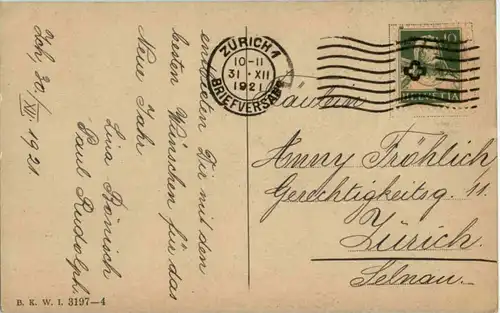 entbieten Dir mit den
besten Wünschen für das
Neue Jahr
Lina Bönisch
Paul Rudolph.
Zch, 30./XII. 1921
ZÜRICH 1
10-11
31·XII
1921
BRIEFVERSAND
10
HELVETIA
Fräulein
Anny Fröhlich
Gerechtigkeitsg. 11.
Zürich.
Selnau.
B. K. W. I. 3197-4